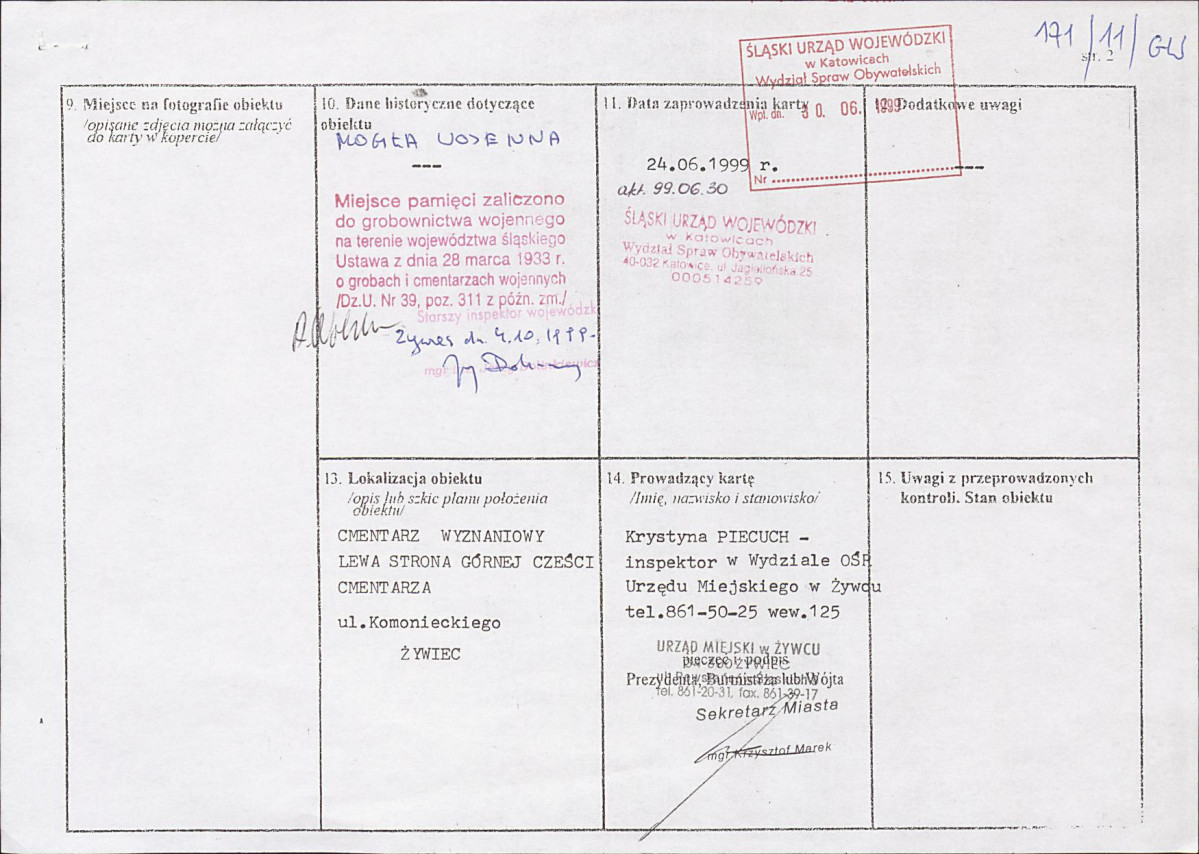 171/11/GLS
str. 2
ŚLĄSKI URZĄD WOJEWÓDZKI
w Katowicach
Wydział Spraw Obywatelskich
Wpł. dn. 30. 06. 1999
Nr
9. Miejsce na fotografie obiektu
/opisane zdjęcia można załączyć
do karty w kopercie/
10. Dane historyczne dotyczące
obiektu
MOGIŁA WOJENNA
---
Miejsce pamięci zaliczono
do grobownictwa wojennego
na terenie województwa śląskiego
Ustawa z dnia 28 marca 1933 r.
o grobach i cmentarzach wojennych
/Dz.U. Nr 39, poz. 311 z późn. zm./
Starszy inspektor wojewódzk
Żywiec dn. 4.10.1999.
mgr
11. Data zaprowadzenia karty
24.06.1999 r.
akt. 99.06.30
ŚLĄSKI URZĄD WOJEWÓDZKI
w Katowicach
Wydział Spraw Obywatelskich
40-032 Katowice, ul. Jagiellońska 25
000514259
12. Dodatkowe uwagi
---
13. Lokalizacja obiektu
/opis lub szkic planu położenia
obiektu/
CMENTARZ WYZNANIOWY
LEWA STRONA GÓRNEJ CZEŚCI
CMENTARZA
ul.Komonieckiego
ŻYWIEC
14. Prowadzący kartę
/Imię, nazwisko i stanowisko/
Krystyna PIECUCH -
inspektor w Wydziale OŚR
Urzędu Miejskiego w Żywcu
tel.861-50-25 wew.125
URZĄD MIEJSKI w ŻYWCU
pieczęć i podpis
ŻYWIEC
Prezydenta, Burmistrza lub Wójta
tel. 861-20-31, fax. 861-39-17
Sekretarz Miasta
mgr Krzysztof Marek
15. Uwagi z przeprowadzonych
kontroli. Stan obiektu